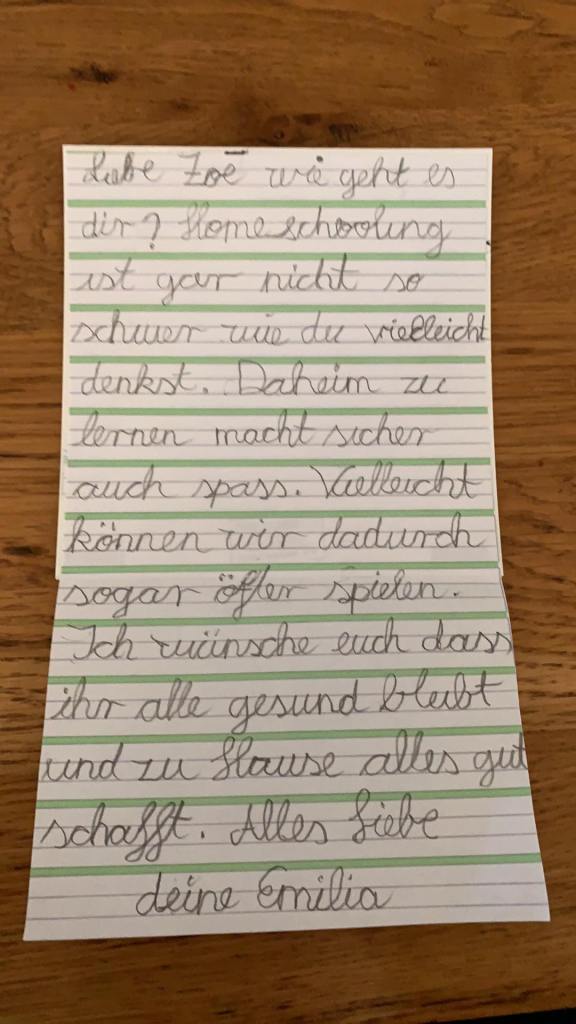 Liebe Zoe wie geht es
dir? Homeschooling
ist gar nicht so
schwer wie du vielleicht
denkst. Daheim zu
lernen macht sicher
auch spass. Vielleicht
können wir dadurch
sogar öfter spielen.
Ich wünsche euch dass
ihr alle gesund bleibt
und zu Hause alles gut
schafft. Alles Liebe
deine Emilia